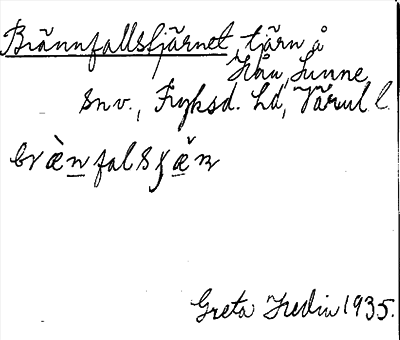 Brännfallstjärnet, tjärn å
Hån, Sunne
snv., Fryksd. hd, Värml l.
bræ̀nfalsʃæ̌ɳ
Greta Hedin 1935.